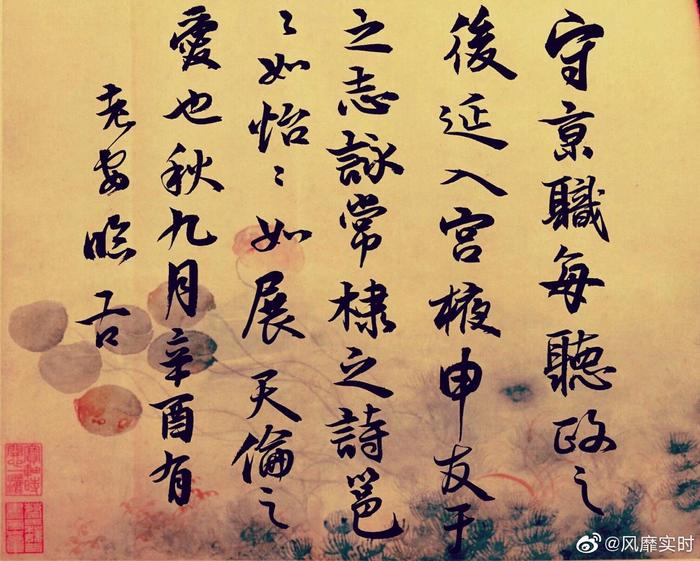 守京職每聽政之
後延入宮掖申友于
之志詠常棣之詩邕
〻如怡〻如展天倫之
愛也秋九月辛酉有
老 臨古
@风靡实时